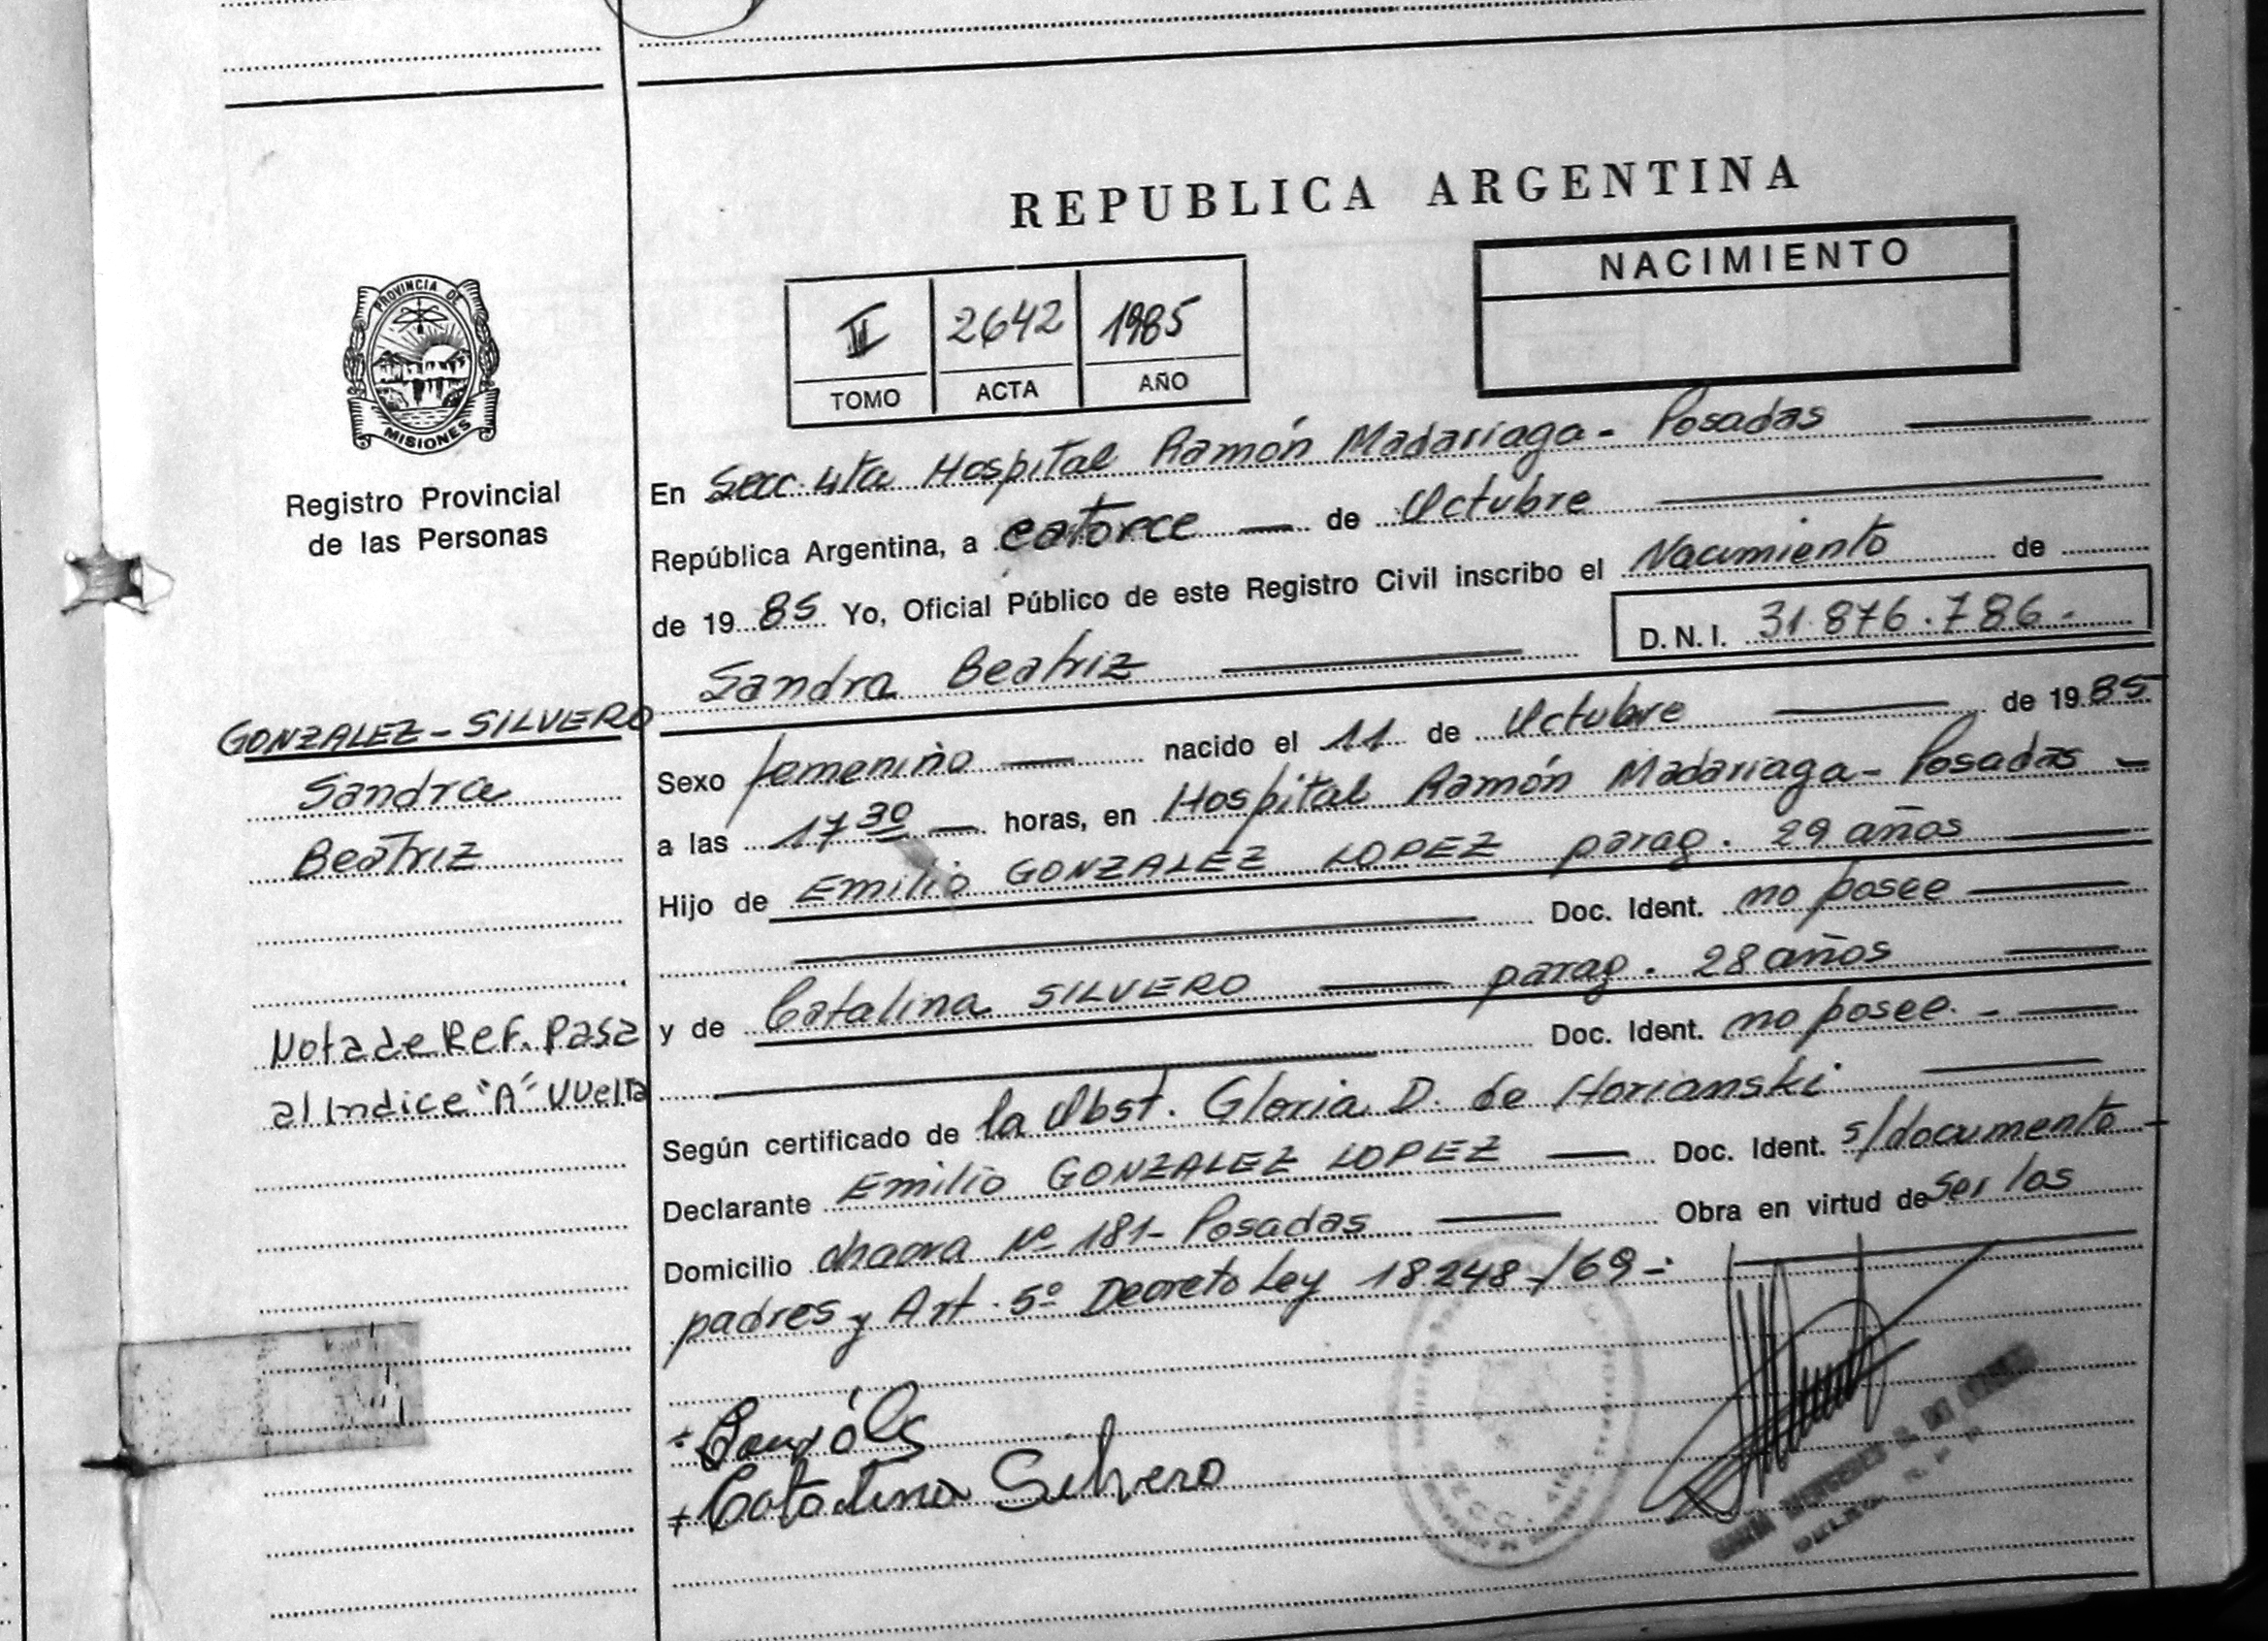 REPUBLICA ARGENTINA
NACIMIENTO
II 2642 1985
TOMO ACTA AÑO
PROVINCIA DE
MISIONES
Registro Provincial
de las Personas
En Secc. 4ta Hospital Ramón Madariaga - Posadas
República Argentina, a catorce de Octubre
de 1985 Yo, Oficial Público de este Registro Civil inscribo el Nacimiento de
D.N.I. 31.876.786.-
Sandra Beatriz
GONZALEZ - SILVERO
Sandra
Beatriz
Sexo femenino nacido el 11 de Octubre de 1985
a las 17 30 horas, en Hospital Ramón Madariaga - Posadas -
Hijo de Emilio GONZALEZ LOPEZ parag. 29 años
Doc. Ident. no posee
y de Catalina SILVERO parag. 28 años
Doc. Ident. no posee. -
Nota de Ref. Pasa
al Indice "A" Vuelta
Según certificado de la Obst. Gloria D. de Horianski
Declarante Emilio GONZALEZ LOPEZ Doc. Ident. s/documento
Domicilio chacra Nº 181 - Posadas Obra en virtud de ser los
padres y Art. 5º Decreto Ley 18248/69 -
Catalina Silvero